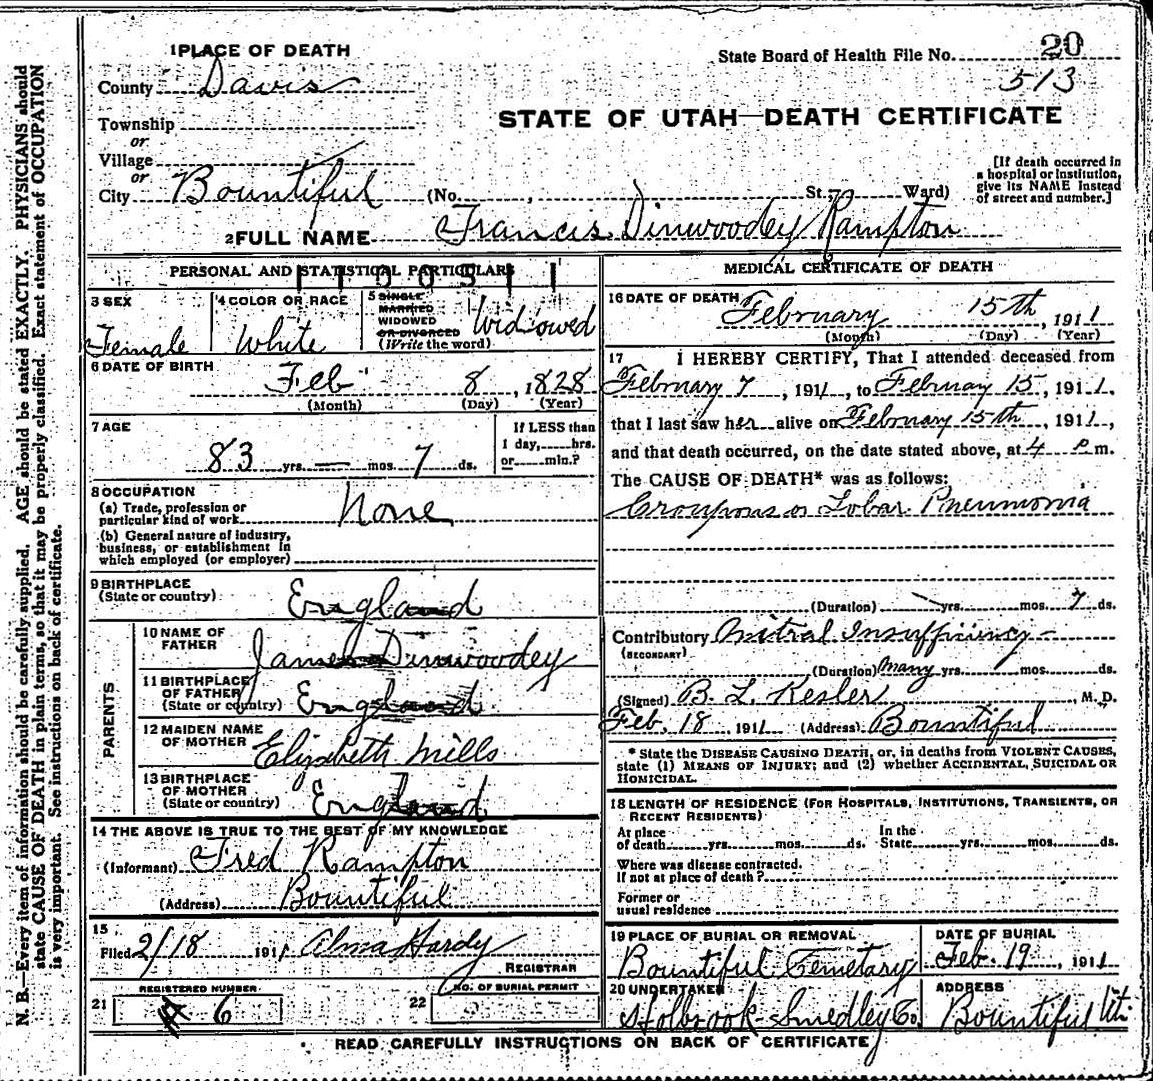 1 PLACE OF DEATH
State Board of Health File No. 20
513
County Davis
STATE OF UTAH—DEATH CERTIFICATE
Township
or
Village
or
City Bountiful (No. , St., Ward)
[If death occurred in
a hospital or institution,
give its NAME instead
of street and number.]
2 FULL NAME Francis Dinwoodey Rampton
PERSONAL AND STATISTICAL PARTICULARS
3 SEX
Female
4 COLOR OR RACE
White
5 SINGLE
MARRIED
WIDOWED
OR DIVORCED
(Write the word)
Widowed
6 DATE OF BIRTH
Feb 8, 1828
(Month) (Day) (Year)
7 AGE
83 yrs. — mos. 7 ds.
If LESS than
1 day, hrs.
or min.?
8 OCCUPATION
(a) Trade, profession or
particular kind of work None
(b) General nature of industry,
business, or establishment in
which employed (or employer)
9 BIRTHPLACE
(State or country) England
PARENTS
10 NAME OF
FATHER James Dinwoodey
11 BIRTHPLACE
OF FATHER
(State or country) England
12 MAIDEN NAME
OF MOTHER Elizabeth Mills
13 BIRTHPLACE
OF MOTHER
(State or country) England
14 THE ABOVE IS TRUE TO THE BEST OF MY KNOWLEDGE
(Informant) Fred Rampton
(Address) Bountiful
15
Filed 2/18 1911 Alma Hardy
REGISTRAR
REGISTERED NUMBER
21 6
NO. OF BURIAL PERMIT
22
MEDICAL CERTIFICATE OF DEATH
16 DATE OF DEATH
February 15th, 1911
(Month) (Day) (Year)
17 I HEREBY CERTIFY, That I attended deceased from
February 7, 1911, to February 15, 1911.
that I last saw her alive on February 15th, 1911,
and that death occurred, on the date stated above, at 4 P m.
The CAUSE OF DEATH* was as follows:
Croupous or Lobar Pneumonia
(Duration) yrs. mos. 7 ds.
Contributory Mitral Insufficiency
(SECONDARY)
(Duration) many yrs. mos. ds.
(Signed) B. L. Kesler, M. D.
Feb. 18, 1911 (Address) Bountiful
* State the DISEASE CAUSING DEATH, or, in deaths from VIOLENT CAUSES,
state (1) MEANS OF INJURY; and (2) whether ACCIDENTAL, SUICIDAL OR
HOMICIDAL.
18 LENGTH OF RESIDENCE (FOR HOSPITALS, INSTITUTIONS, TRANSIENTS, OR
RECENT RESIDENTS)
At place
of death yrs. mos. ds.
In the
State yrs. mos. ds.
Where was disease contracted.
If not at place of death?
Former or
usual residence
19 PLACE OF BURIAL OR REMOVAL
Bountiful Cemetary
DATE OF BURIAL
Feb. 19, 1911
20 UNDERTAKER
Holbrook-Smedley Co.
ADDRESS
Bountiful Ut.
READ CAREFULLY INSTRUCTIONS ON BACK OF CERTIFICATE
N. B.—Every item of information should be carefully supplied. AGE should be stated EXACTLY. PHYSICIANS should
state CAUSE OF DEATH in plain terms, so that it may be properly classified. Exact statement of OCCUPATION
is very important. See instructions on back of certificate.